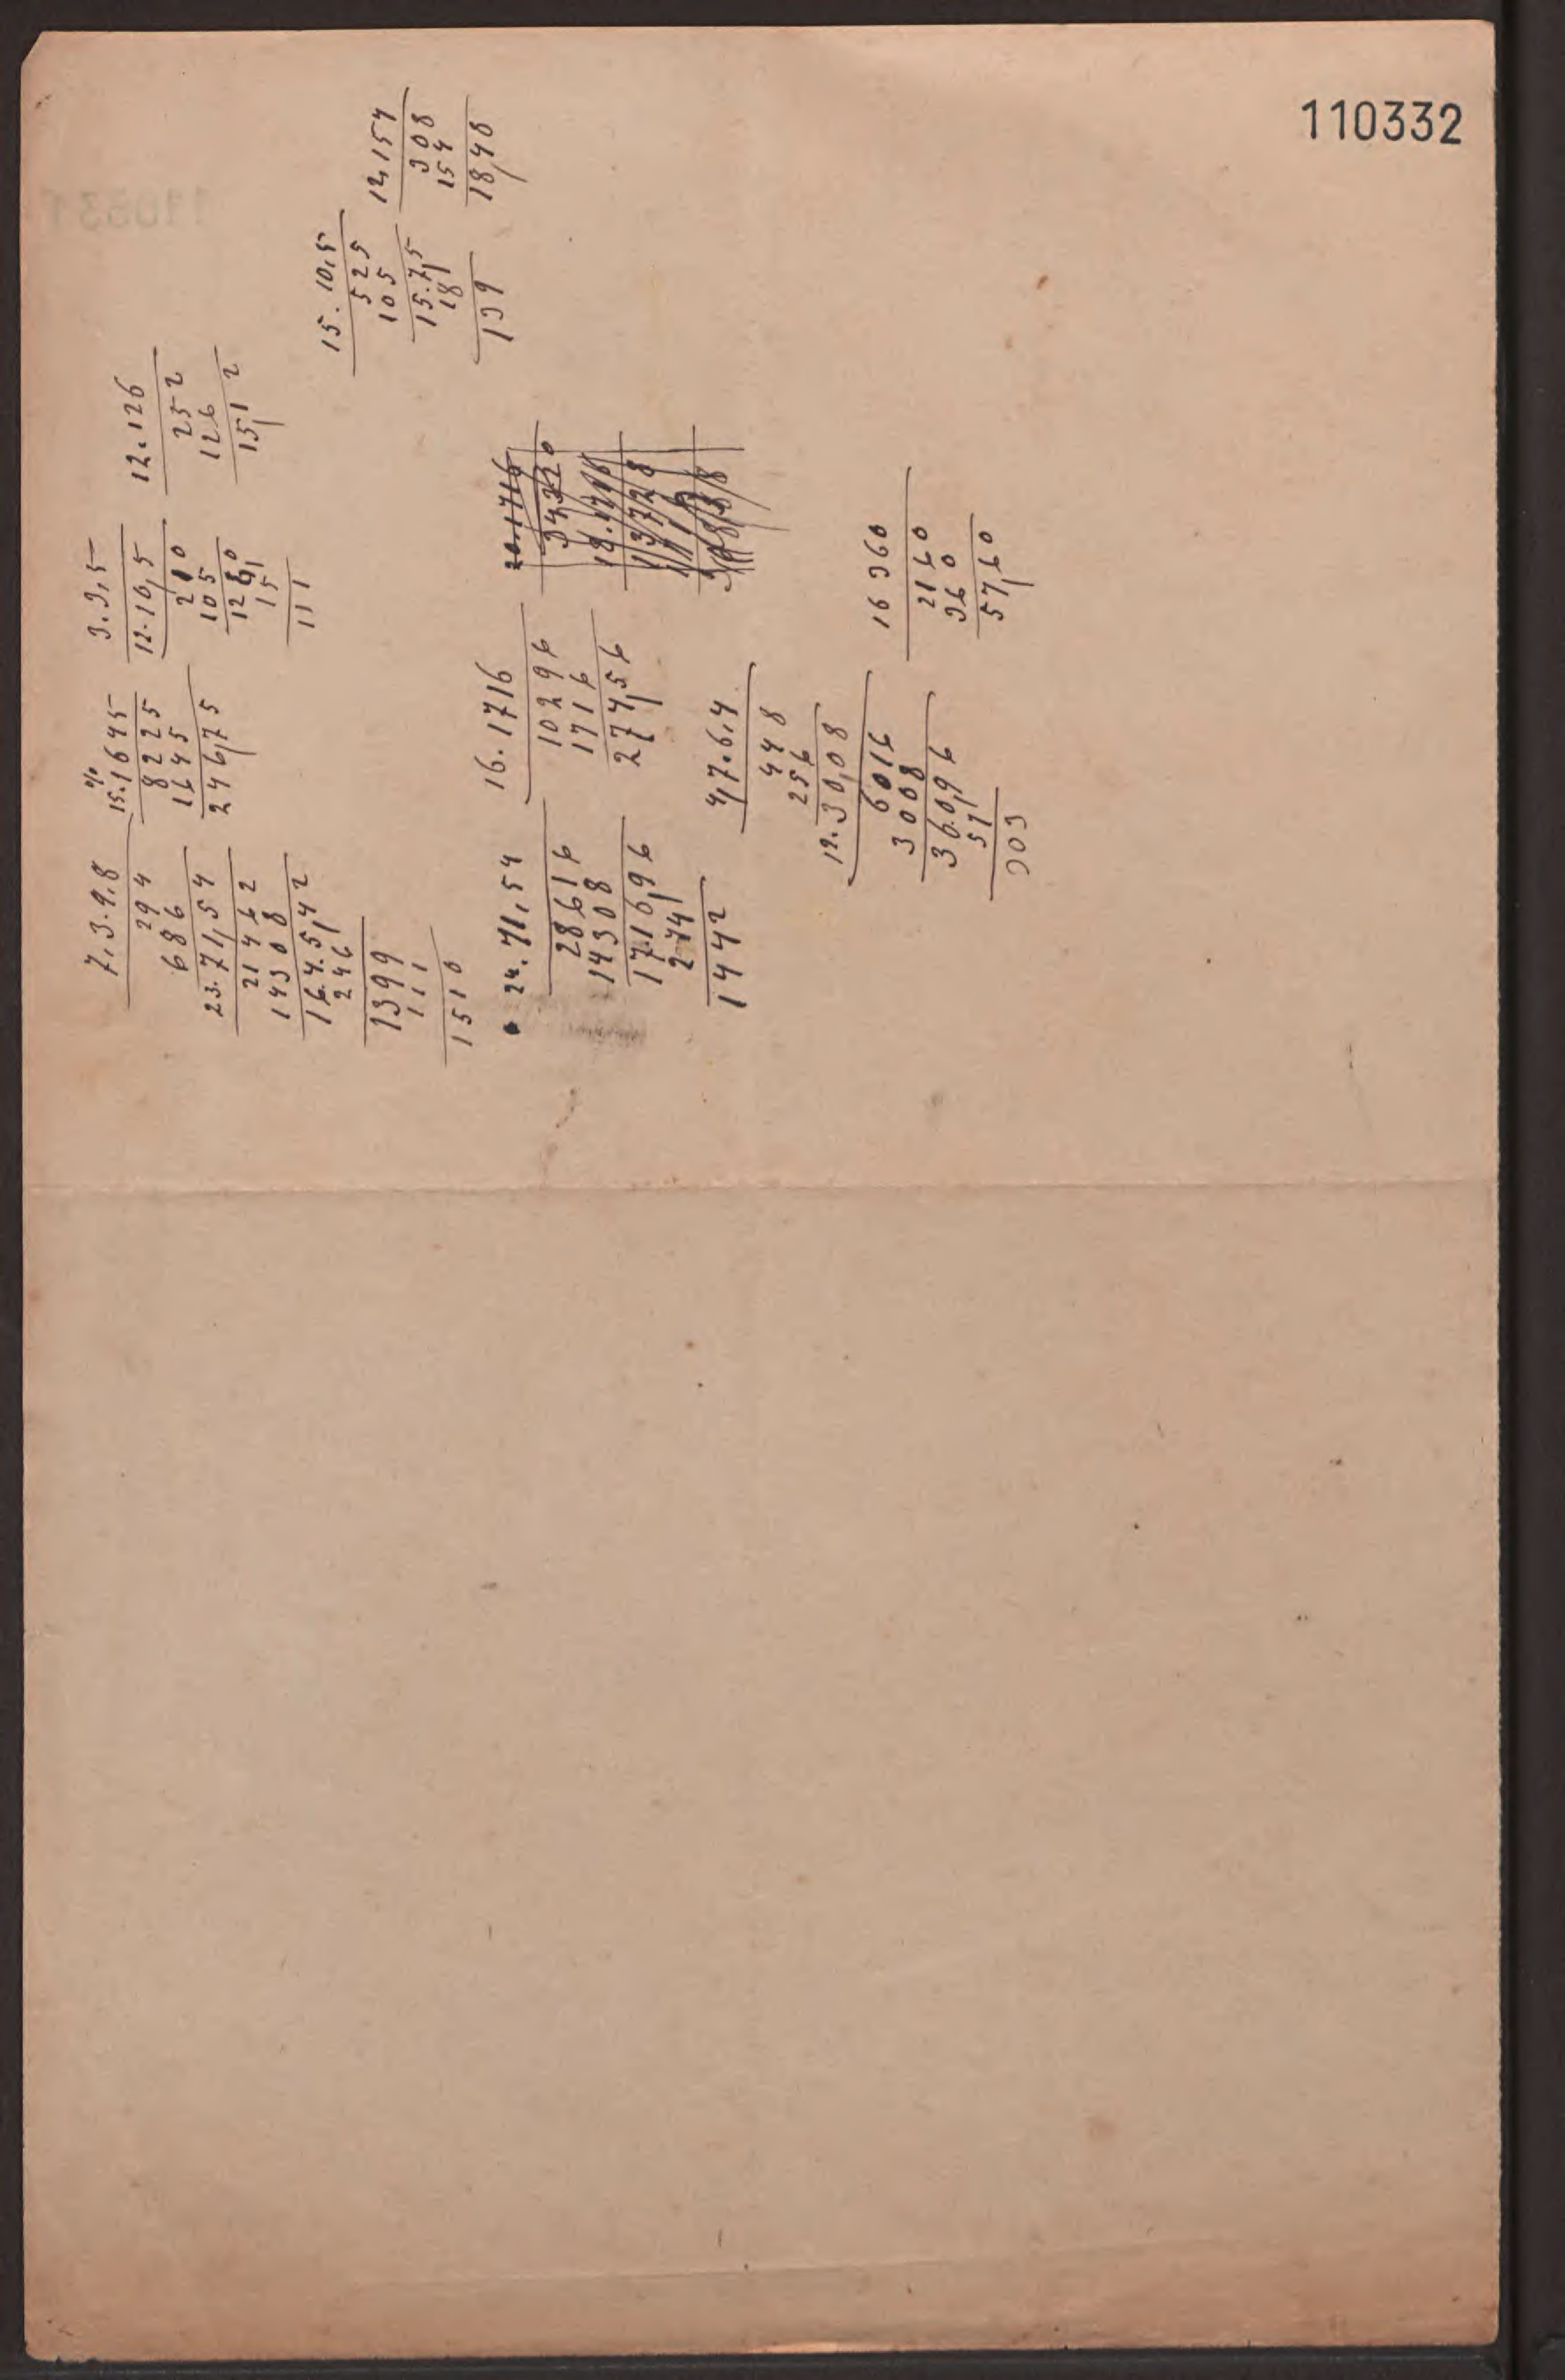 110332
7,3.9,8
294
686
23.71,54
21462
14308
164.5,42
246
1399
111
1510
%
15.1645
8225
1645
246,75
3.3,5
12.10,5
210
105
1260
15
111
12.126
252
126
15,12
15.10,5
525
105
15.7,5
18
139
12,154
308
154
18,48
24.71,54
28616
14308
1716,96
274
1442
16.1716
10296
1716
274,56
20.1716
34320
4,7.6,4
448
256
12.30,08
6016
3008
360,96
57
303
16 360
2160
360
57,60